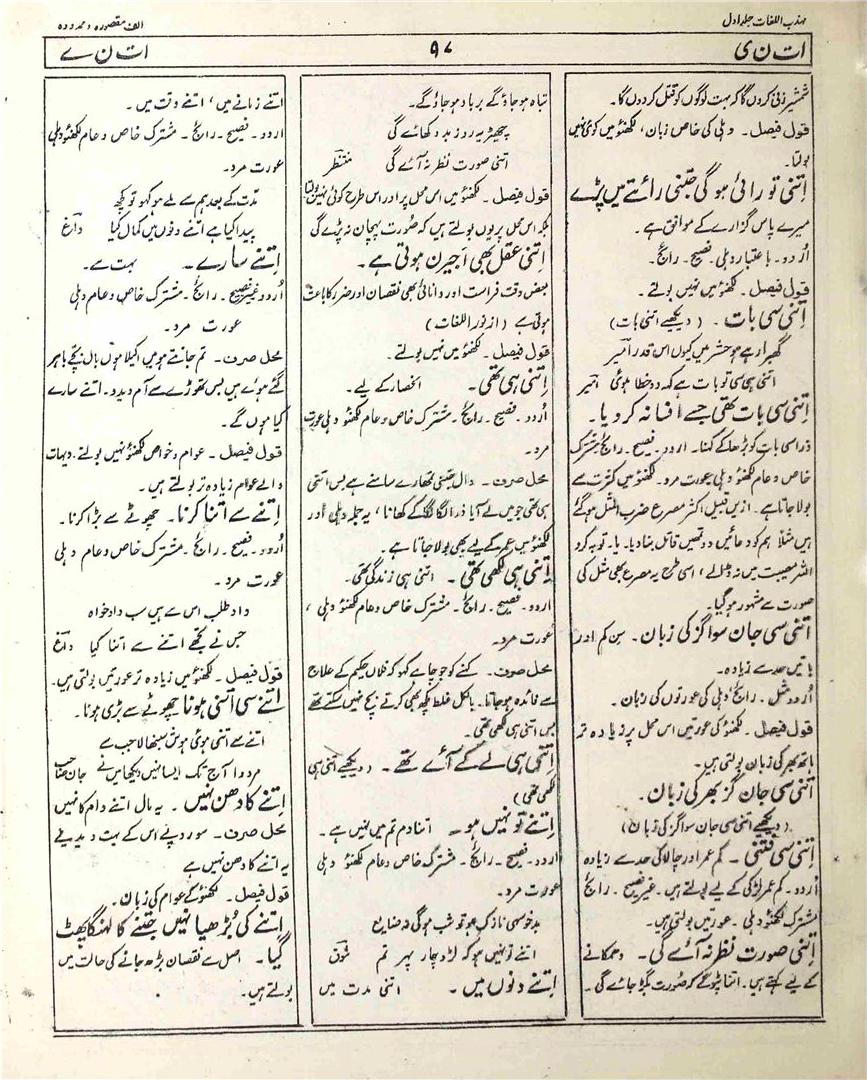 مہذب اللغات جلد اول
الف مقصورہ و ممدودہ
ات ن ی
۹۷
ات ن ے
شمشیر زنی کروں گا کہ بہت لوگوں کو قتل کردوں گا۔
قول فیصل۔ دہلی کی خاص زبان، لکھنؤ میں کوئی نہیں
بولتا۔
اِتنی تو رائی ہوگی جتنی رائتے میں پڑے
میرے پاس گزارے کے موافق ہے۔
اُردو۔ باعتبار دہلی۔ فصیح۔ رائج۔
قول فیصل۔ لکھنؤ میں نہیں بولتے۔
اِتنی سی بات۔ (دیکھیے اتنی بات)
گھبرا رہے ہو حشر میں کیوں اس قدر امیر
اتنی ہی سی تو بات ہے کہہ دو خطا ہوئی امیر
اِتنی سی بات تھی جسے افسانہ کردیا۔
ذرا سی بات کو بڑھا کے کہنا۔ اردو۔ فصیح۔ رائج مشترک
خاص و عام لکھنؤ و دہلی۔ عورت مرد۔ لکھنؤ میں کثرت سے
بولا جاتا ہے۔ ازیں قبیل اکثر مصرع ضرب المثل ہوگئے
ہیں مثلاً ہم کو دعائیں دو تمھیں قاتل بنا دیا۔ یا۔ توبہ کرو
اللہ مصیبت میں نہ ڈالے، اسی طرح یہ مصرع بھی مثل کی
صورت سے مشہور ہوگیا۔
اِتنی سی جان سوا گز کی زبان۔ سن کم اور
باتیں حد سے زیادہ۔
اُردو مثل۔ رائج، دہلی کی عورتوں کی زبان۔
قول فیصل۔ لکھنؤ کی عورتیں اس محل پر زیادہ تر
ہاتھ بھر کی زبان بولتی ہیں۔
اتنی سی جان گز بھر کی زبان۔
(دیکھیے اتنی سی جان سوا گز کی زبان)
اِتنی سی فتنی۔ کم عمر اور چالاکی حد سے زیادہ
اُردو۔ کم عمر لڑکی کے لیے بولتے ہیں۔ غیر فصیح۔ رائج
مشترک لکھنؤ دہلی۔ عورتیں بولتی ہیں۔
اِتنی صورت نظر نہ آئے گی۔ دھمکانے
کے لیے کہتے ہیں۔ اتنا پٹو گے کہ صورت بگڑ جائے گی۔
تباہ ہو جاؤ گے برباد ہو جاؤ گے۔
چھیڑ یہ روز بد دکھائے گی
اتنی صورت نظر نہ آئے گی منتظر
قول فیصل۔ لکھنؤ میں اس محل پر اور اس طرح کوئی نہیں بولتا
بلکہ اس محل پر یوں بولتے ہیں کہ صورت پہچان نہ پڑے گی
اِتنی عقل بھی اَجیرن ہوتی ہے۔
بعض وقت فراست اور دانائی بھی نقصان اور ضرر کا باعث
ہوتی ہے (از نور اللغات)
قول فیصل۔ لکھنؤ میں نہیں بولتے۔
اِتنی ہی تھی۔ انحصار کے لیے۔
اُردو۔ فصیح۔ رائج۔ مشترک خاص و عام لکھنؤ و دہلی عورت
مرد۔
محل صرف۔ دال جتنی تمھارے سامنے ہے بس اتنی
ہی تھی جو میں لے آیا ذرا لگا لگا کے کھانا، یہ جملہ دہلی اور
لکھنؤ میں عمر کے لیے بھی بولا جاتا ہے۔
اِتنی ہی لکھی تھی۔ اتنی ہی زندگی تھی۔
اردو۔ فصیح۔ رائج۔ مشترک خاص و عام لکھنؤ و دہلی،
عورت مرد۔
محل صرف۔ کہنے کو جو چاہے کہو کہ فلاں حکیم کے علاج
سے فائدہ ہو جاتا۔ بالکل غلط کچھ بھی کرتے بچ نہیں سکتے تھے
بس اتنی ہی لکھی تھی۔
اِتنی ہی لے کے آئے تھے۔ (دیکھیے اتنی ہی
لکھی تھی)
اِتنے تو نہیں ہو۔ اتنا دم تم میں نہیں ہے۔
اردو۔ فصیح۔ رائج۔ مشترک خاص و عام لکھنؤ و دہلی
عورت مرد۔
بدخوئی نازک ہو تو شب ہوگی نہ ضایع
اتنے تو نہیں ہو کہ لڑو چار پہر تم شوق
اِتنے دنوں میں۔ اتنی مدت میں
اتنے زمانے میں، اتنے وقت میں۔
اردو۔ فصیح۔ رائج۔ مشترک خاص و عام لکھنؤ دہلی
عورت مرد۔
مدت کے بعد ہم سے ملے ہو کہو تو کچھ
پیدا کیا ہے اتنے دنوں میں کمال کیا داغ
اِتنے سارے۔ بہت سے۔
اُردو غیر فصیح۔ رائج۔ مشترک خاص و عام دہلی
عورت مرد۔
محل صرف۔ تم جانتے ہو میں اکیلا ہوں بال بچے باہر
گئے ہوئے ہیں بس تھوڑے سے آم دیدو۔ اتنے سارے
کیا ہوں گے۔
قول فیصل۔ عوام و خواص لکھنؤ نہیں بولتے، دیہات
والے عوام زیادہ تر بولتے ہیں۔
اِتنے سے اتنا کرنا۔ چھوٹے سے بڑا کرنا۔
اُردو۔ فصیح۔ رائج۔ مشترک خاص و عام دہلی
عورت مرد۔
داد طلب اس سے ہیں سب داد خواہ
جس نے تجھے اتنے سے اتنا کیا داغ
قول فیصل۔ لکھنؤ میں زیادہ تر عورتیں بولتی ہیں۔
اِتنے سی اتنی ہونا چھوٹے سے بڑی ہونا۔
اتنے سے اتنی ہوئی ہوش سنبھالا جب سے
مردوا آج تک ایسا نہیں دیکھا میں نے جان صاحب
اِتنے کا دھن نہیں۔ یہ مال اتنے دام کا نہیں
محل صرف۔ سو روپے اس کے بہت دیدیے
یہ اتنے کا دھن نہیں ہے
قول فیصل۔ لکھنؤ کے عوام کی زبان۔
اِتنے کی بُڑھیا نہیں جتنے کا لہنگا پھٹ
گیا۔ اصل سے نقصان بڑھ جانے کی حالت میں
بولتے ہیں۔